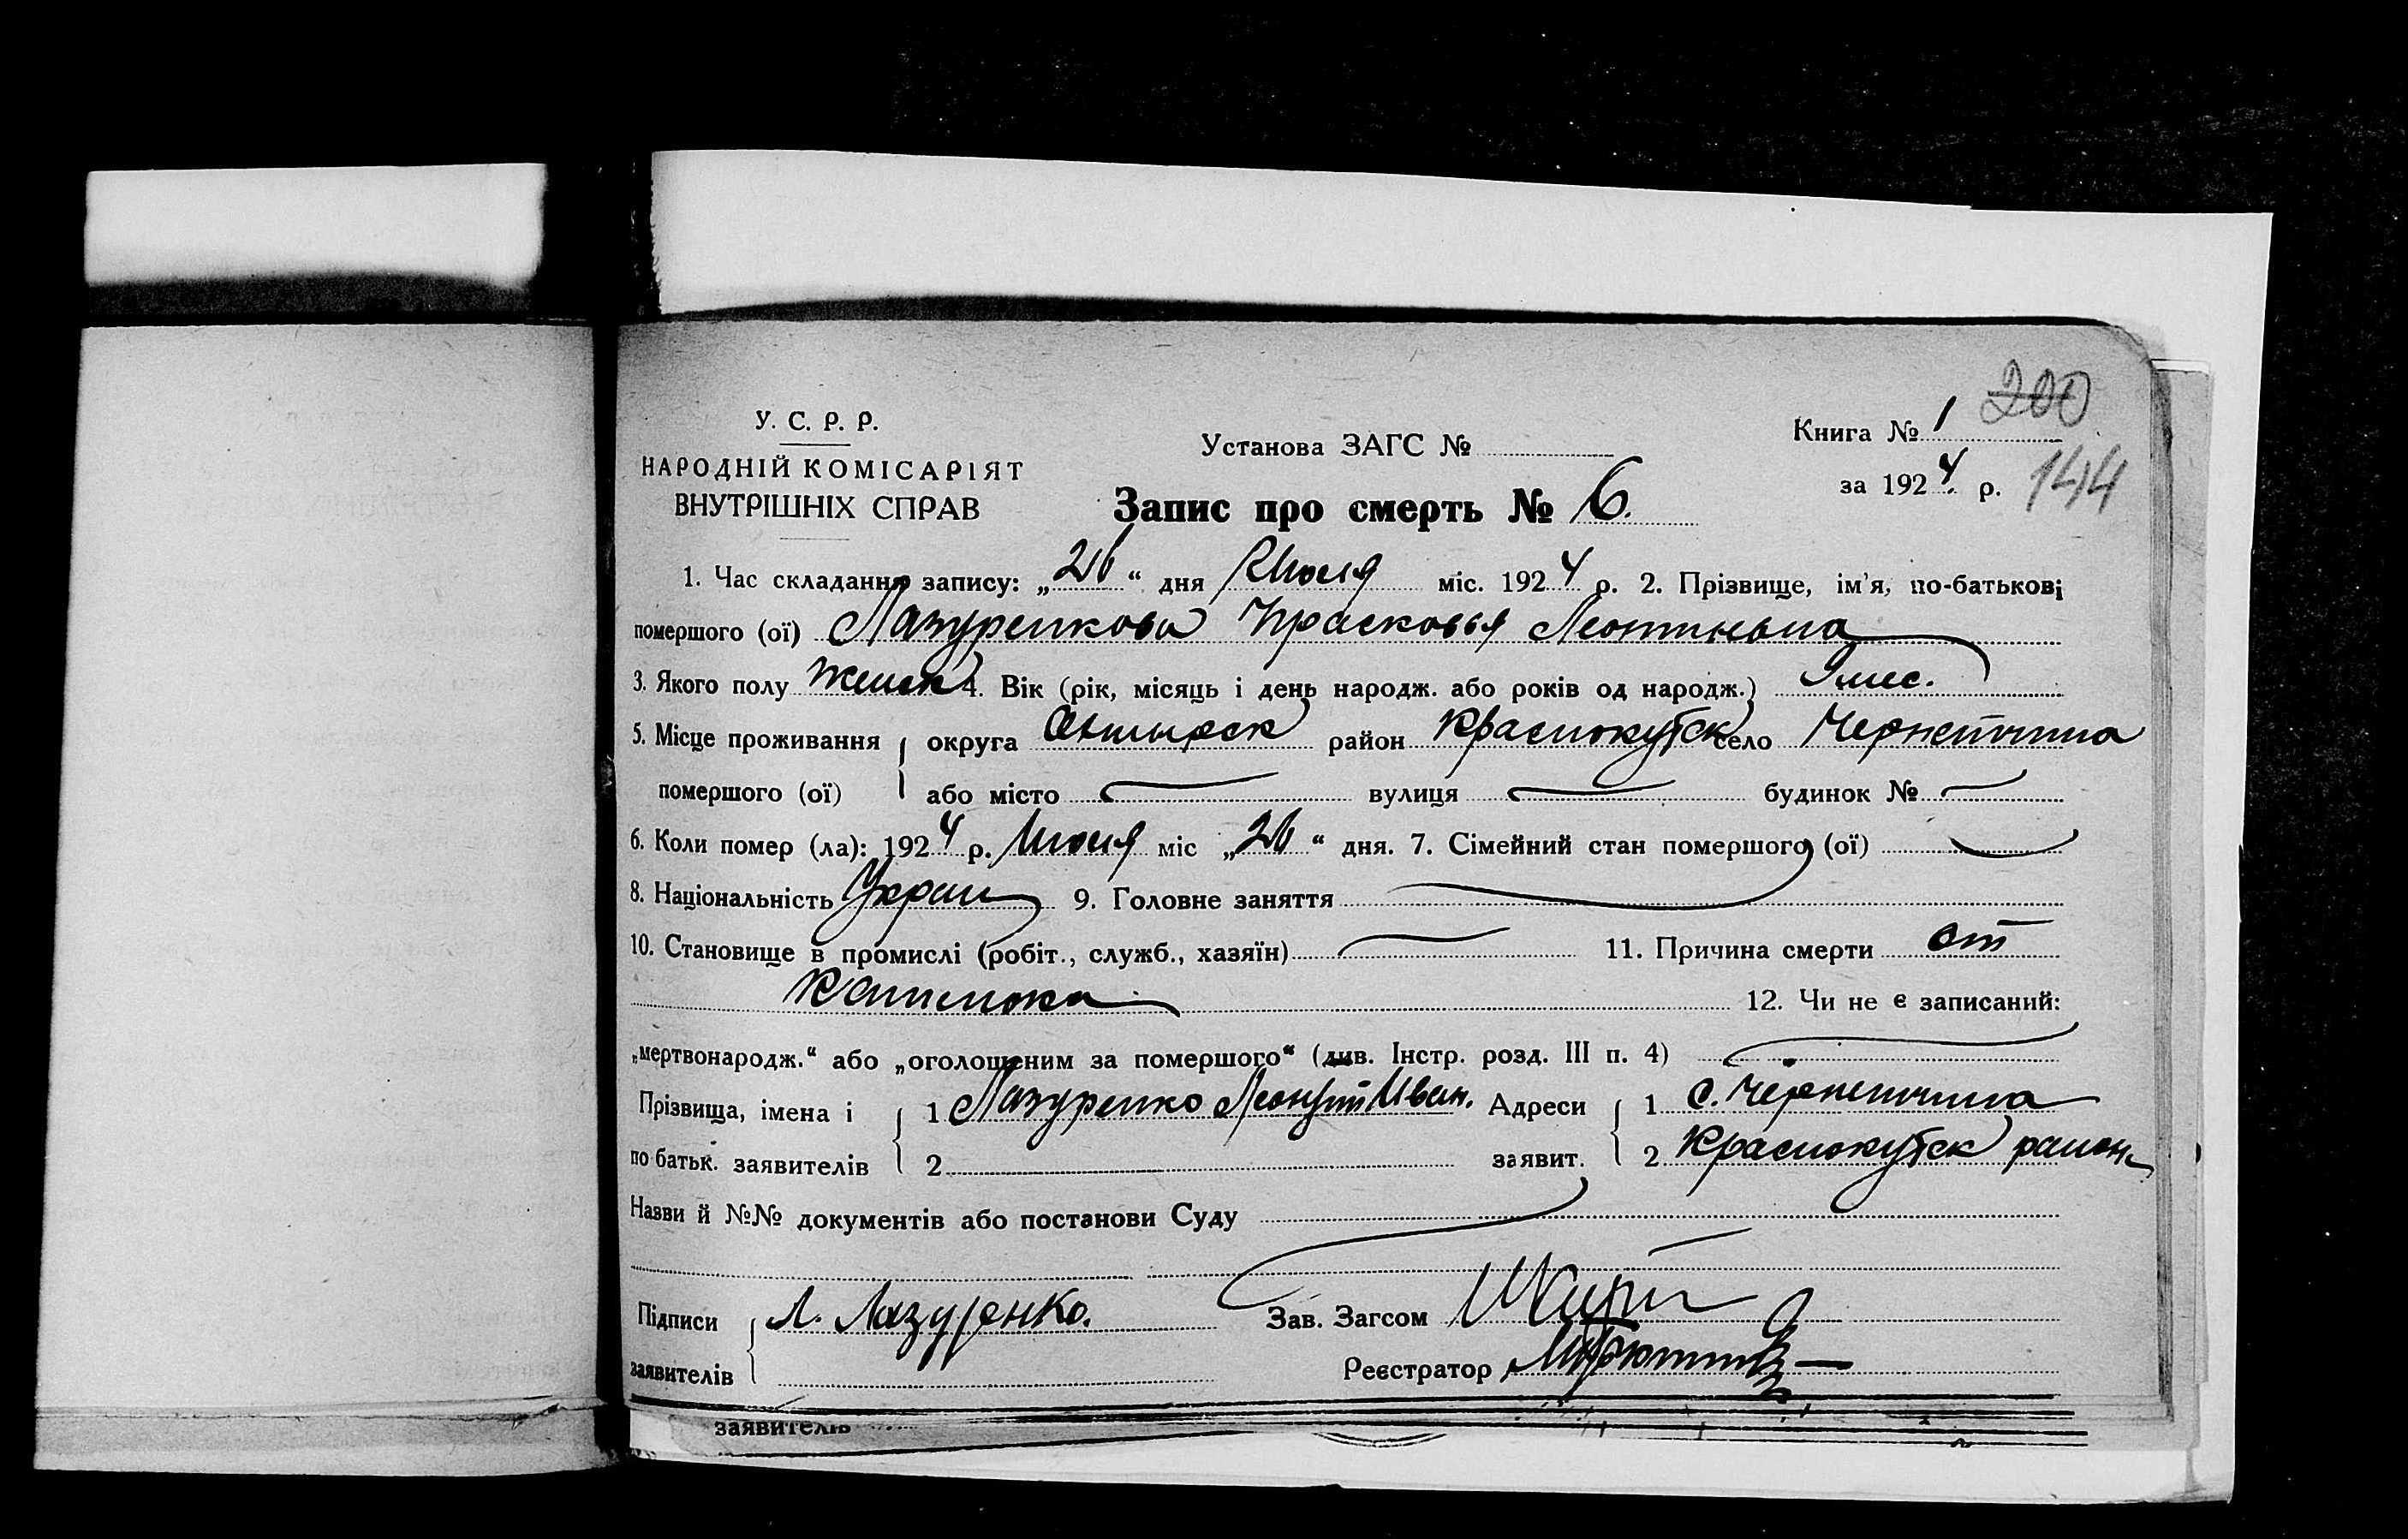 200
У. С. Р. Р.
Установа ЗАГС №
Книга № 1
НАРОДНІЙ КОМІСАРІЯТ
ВНУТРІШНІХ СПРАВ
за 1924 р. 144
Запис про смерть № 6.
1. Час складання запису: „26“ дня Июля міс. 1924 р. 2. Прізвище, ім'я, по-батькові
помершого (ої) Лазуренкова Прасковья Леонтиевна
3. Якого полу женск 4. Вік (рік, місяць і день народж. або років од народж.) 9 мес.
5. Місце проживання округа Ахтырск район Краснокутск село Чернетчина
помершого (ої) або місто вулиця будинок №
6. Коли помер (ла): 1924 р. Июля міс „26“ дня. 7. Сімейний стан помершого (ої)
8. Національність Украин 9. Головне заняття
10. Становище в промислі (робіт., служб., хазяїн) 11. Причина смерти от
12. Чи не є записаний:
„мертвонародж.“ або „оголошеним за помершого“ (див. Інстр. розд. III п. 4)
Прізвища, імена і 1 Лазуренко Леонтий Иван. Адреси 1 с. Чернетчина
по батьк. заявителів 2 заявит. 2 Краснокутск район
Назви й №№ документів або постанови Суду
Підписи Л. Лазуренко. Зав. Загсом
заявителів Реєстратор
заявителів